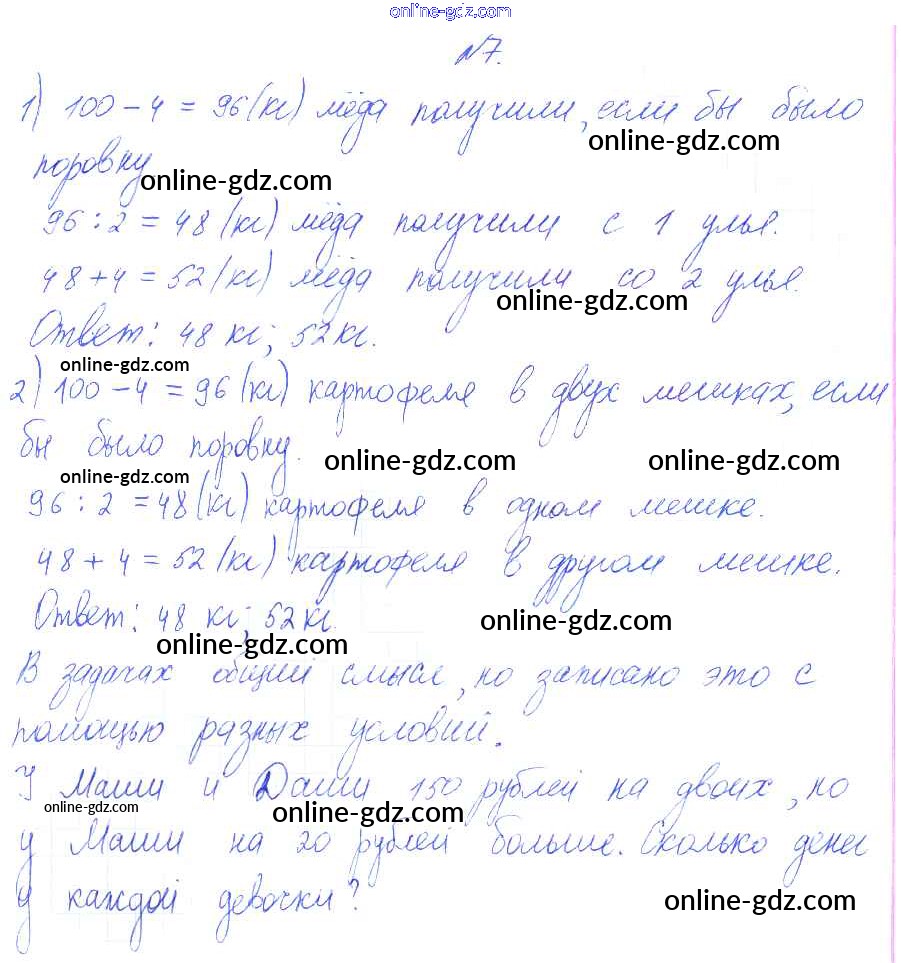 online-gdz.com
№7.
1) 100 - 4 = 96 (кг) мёда получили, если бы было
online-gdz.com
поровну
online-gdz.com
96 : 2 = 48 (кг) мёда получили с 1 улья.
48 + 4 = 52 (кг) мёда получили со 2 улья.
online-gdz.com
Ответ: 48 кг; 52 кг.
online-gdz.com
2) 100 - 4 = 96 (кг) картофеля в двух мешках, если
бы было поровну.
online-gdz.com online-gdz.com
online-gdz.com
96 : 2 = 48 (кг) картофеля в одном мешке.
48 + 4 = 52 (кг) картофеля в другом мешке.
Ответ: 48 кг; 52 кг.
online-gdz.com
online-gdz.com
В задачах общий смысл, но записано это с
помощью разных условий.
У Маши и Даши 150 рублей на двоих, но
online-gdz.com
online-gdz.com
у Маши на 20 рублей больше. Сколько денег
у каждой девочки?
online-gdz.com